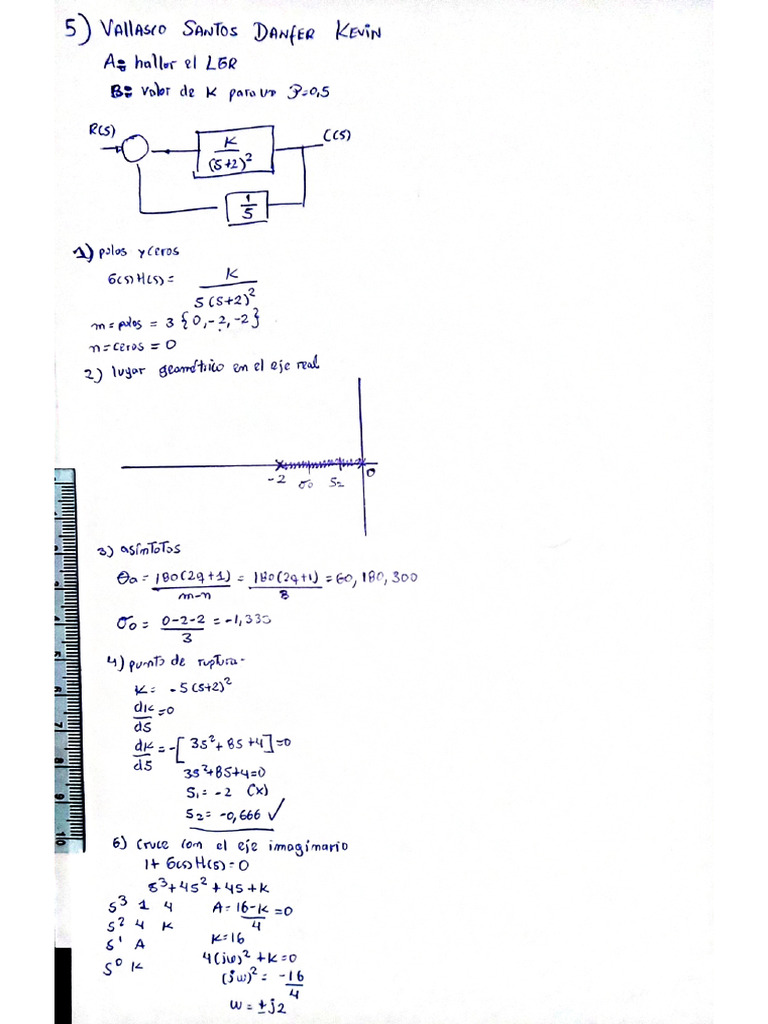 5) VALLASCO SANTOS DANFER KEVIN
A= hallar el LGR
B= valor de K para un ζ=0,5
R(s)
K
(s+2)²
C(s)
1
s
1) polos y ceros
G(s)H(s) = K
s(s+2)²
m = polos = 3 {0,-2,-2}
n = ceros = 0
2) lugar geométrico en el eje real
-2 σ₀ S₂ 0
3) asíntotos
θa = 180(2q+1) = 180(2q+1) = 60, 180, 300
m-n 3
σ₀ = 0-2-2 = -1,333
3
4) punto de ruptura.
K = -s(s+2)²
dK =0
ds
dK = -[3s²+8s+4]=0
ds
3s²+8s+4=0
S₁ = -2 (x)
S₂ = -0,666 ✓
6) cruce con el eje imaginario
1+ G(s)H(s)=0
s³+4s²+4s+K
s³ 1 4 A = 16-K =0
s² 4 K 4
s¹ A K=16
s⁰ K 4(jω)²+K=0
(jω)² = -16
4
ω = ±j2